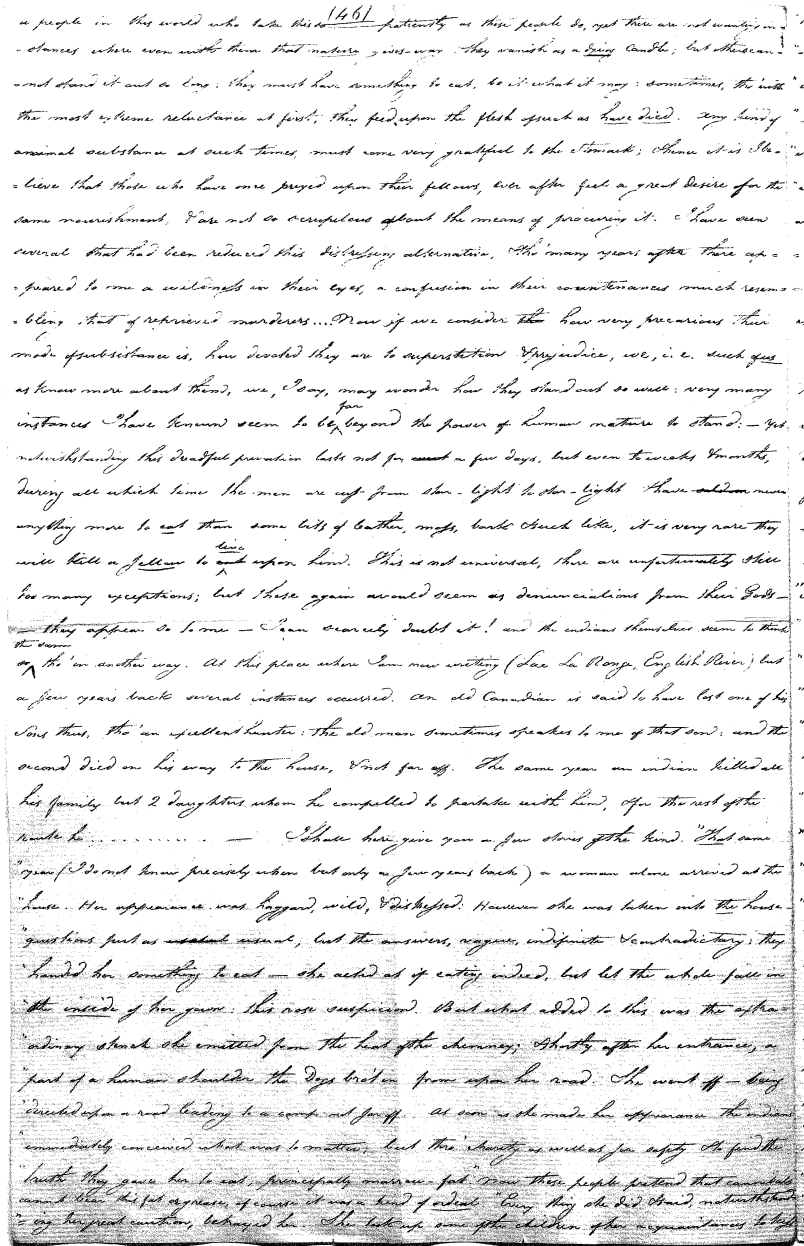 (46)
a people in this world who take this so patiently as these people do, yet there are not wanting in-
-stances where even with them that nature gives way they vanish as a dying Candle; but others can-
-not stand it out so long: they must have something to eat, be it what it may: sometimes, tho' with
the most extreme reluctance at first, they feed upon the flesh of such as have died. Any kind of
animal substance at such times, must come very grateful to the Stomach; & hence it is I be-
-lieve that those who have once preyed upon their fellows, ever after feel a great desire for the
same nourishment, & are not so scrupulous about the means of procuring it. I have seen
several that had been reduced this distressing alternative, & tho' many years after there ap-
-peared to me a wildness in their eyes, a confusion in their countenances much resem-
-bling that of reprieved murderers.... Now if we consider the how very precarious their
mode of subsistance is, how devoted they are to superstition & prejudice, we, i.e. such of us
as know more about them, we, I say, may wonder how they stand out so well: very many
instances I have known seem to be far beyond the power of human nature to stand: — Yet
notwithstanding this dreadful privation lasts not for a few days, but even to weeks & months,
during all which time the men are out from star-light to star-light & have seldom never
anything more to eat than some bits of leather, moss, bark & such like, it is very rare they
will kill a fellow to live upon him. This is not universal, there are unfortunately still
too many exceptions; but these again would seem as denunciations from their Gods —
— they appear so to me — I can scarcely doubt it! and the indians themselves seem to think
the same
so, tho' in another way. At this place where I am now writing (Lac La Ronge, English River) but
a few years back several instances occurred. An old Canadian is said to have lost one of his
Sons thus, tho' an excellent hunter: the old man sometimes speaks to me of that son: and the
second died on his way to the house, & not far off. The same year an indian killed all
his family but 2 daughters whom he compelled to partake with him, & for the rest of the
route he ............ — I shall here give you a few stories of the kind. "That same
"year (I do not know precisely when but only a few years back) a woman alone arrived at the
"house. Her appearance was haggard, wild, & distressed: However she was taken into the house-
"questions put as usual, but the answers, vague, indefinite & contradictory: they
"handed her something to eat — she acted as if eating indeed, but let the whole fall in
"the inside of her gown: this rose suspicion. But what added to this was the extra-
"ordinary stench she emitted from the heat of the chimney; & shortly after her entrance, a
"part of a human shoulder the Dogs bro't in from upon her road. She went off — being
"directed upon a road leading to a camp not far off. As soon as she made her appearance the indians
"immediately conceived what was to matter; but thro' charity as well as for safety & to find the
"truth they gave her to eat, principally marrow-fat" Now these people pretend that cannibals
cannot bear this fat or grease, of course it was a kind of ordeal "Every thing she did & said, notwithstand-
"-ing her great caution, betrayed her. She took up one of the children of her acquaintances to